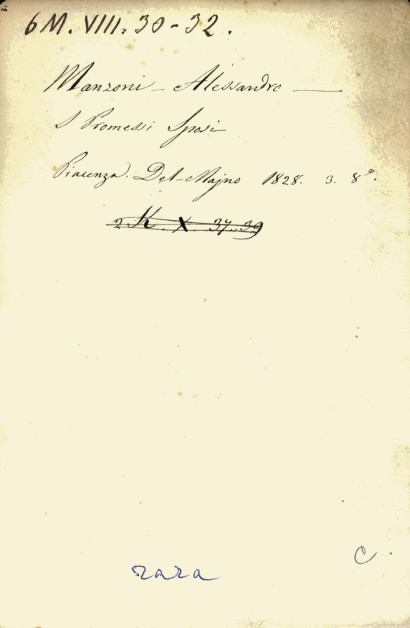 6 M. VIII. 30-32.
Manzoni - Alessandro —
I Promessi Sposi
Piacenza. Del-Majno 1828. 3. 8°.
2 K. X 37-39
C.
rara